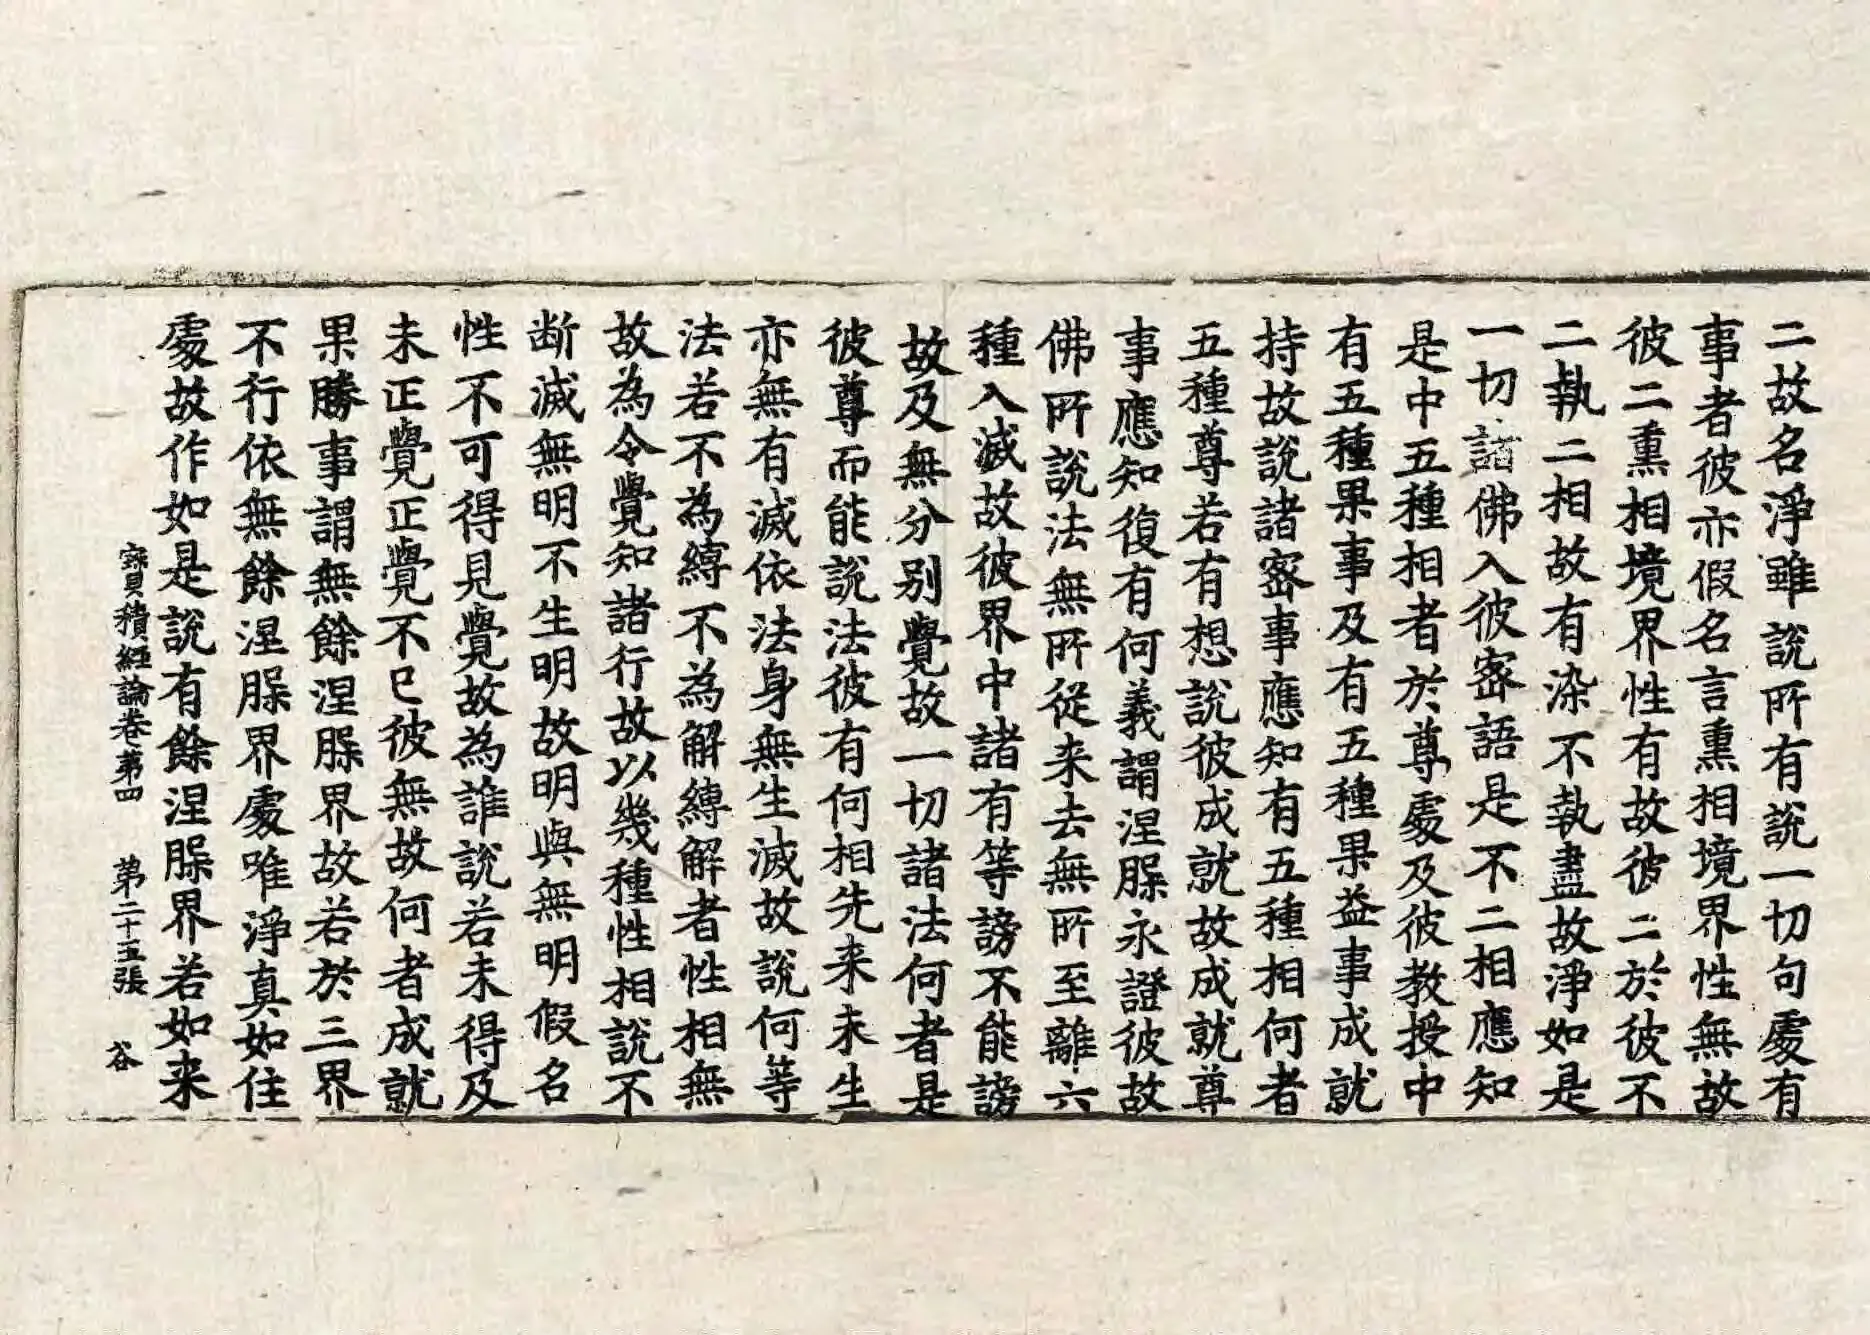 二故名淨雖說所有說一切句處有
事者彼亦假名言熏相境界性無故
彼二熏相境界性有故彼二於彼不
二執二相故有染不執盡故淨如是
一切諸佛入彼密語是不二相應知
是中五種相者於尊處及彼教授中
有五種果事及有五種果益事成就
持故說諸密事應知有五種相何者
五種尊若有想說彼成就故成就尊
事應知復有何義謂涅槃永證彼故
佛所說法無所從来去無所至離六
種入滅故彼界中諸有等謗不能謗
故及無分别覺故一切諸法何者是
彼尊而能說法彼有何相先来未生
亦無有滅依法身無生滅故說何等
法若不為縛不為解縛解者性相無
故為令覺知諸行故以幾種性相說不
断滅無明不生明故明與無明假名
性不可得見覺故為誰說若未得及
未正覺正覺不已彼無故何者成就
果勝事謂無餘涅槃界故若於三界
不行依無餘涅槃界處唯淨真如住
處故作如是說有餘涅槃界若如来
寶積經論卷第四 第二十五張 谷